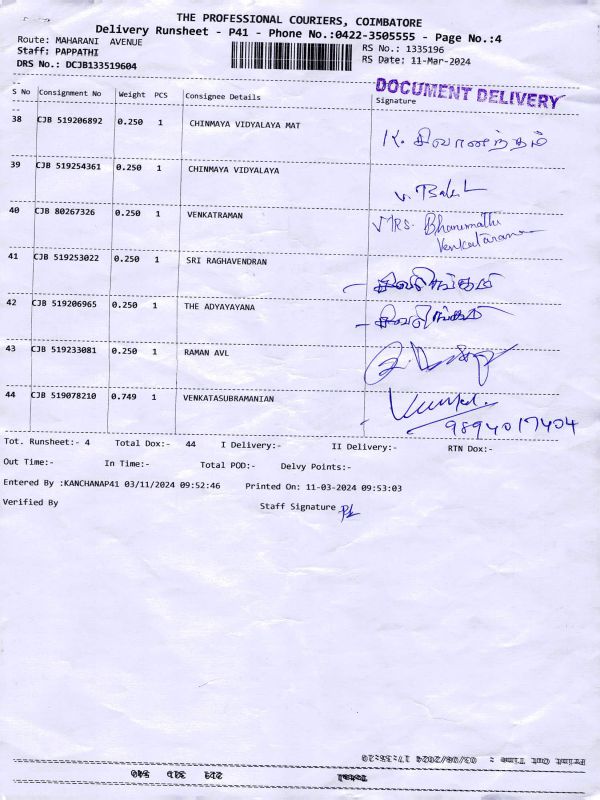 THE PROFESSIONAL COURIERS, COIMBATORE
Delivery Runsheet - P41 - Phone No.:0422-3505555 - Page No.:4
Route: MAHARANI AVENUE
RS No.: 1335196
Staff: PAPPATHI
RS Date: 11-Mar-2024
DRS No.: DCJB133519604
DOCUMENT DELIVERY
S No Consignment No Weight PCS Consignee Details Signature
38 CJB 519206892 0.250 1 CHINMAYA VIDYALAYA MAT K. சிவானந்தம்
39 CJB 519254361 0.250 1 CHINMAYA VIDYALAYA
40 CJB 80267326 0.250 1 VENKATRAMAN MRS. Bhanumathi
Venkataraman
41 CJB 519253022 0.250 1 SRI RAGHAVENDRAN
42 CJB 519206965 0.250 1 THE ADYAYAYANA
43 CJB 519233081 0.250 1 RAMAN AVL
44 CJB 519078210 0.749 1 VENKATASUBRAMANIAN
9894017404
Tot. Runsheet:- 4 Total Dox:- 44 I Delivery:- II Delivery:- RTN Dox:-
Out Time:- In Time:- Total POD:- Delvy Points:-
Entered By :KANCHANAP41 03/11/2024 09:52:46 Printed On: 11-03-2024 09:53:03
Verified By Staff Signature
Print Out Time : 03/08/2024 17:36:20
Total